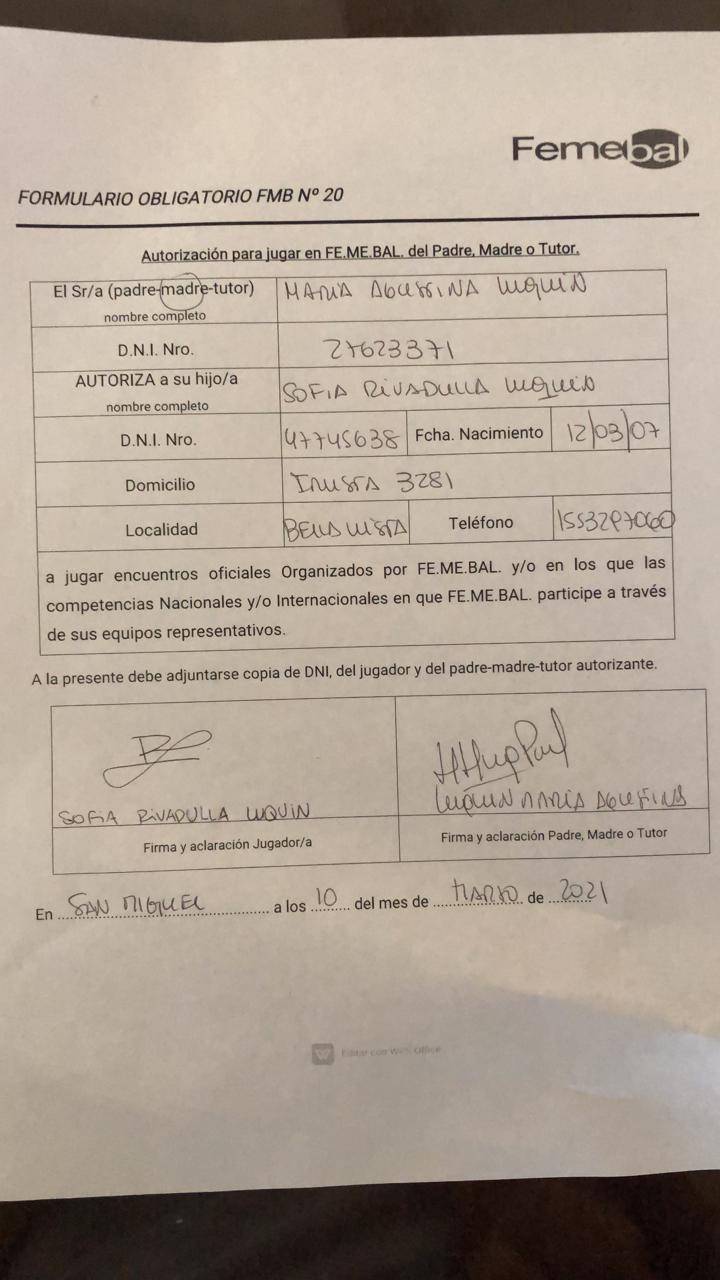 Femebal
FORMULARIO OBLIGATORIO FMB Nº 20
Autorización para jugar en FE.ME.BAL. del Padre, Madre o Tutor.
El Sr/a (padre-madre-tutor) MARIA AGUSTINA LUQUIN
nombre completo
D.N.I. Nro. 27623371
AUTORIZA a su hijo/a SOFIA RIVADULLA LUQUIN
nombre completo
D.N.I. Nro. 47745638 Fcha. Nacimiento 12/03/07
Domicilio 3281
Localidad BELLA VISTA Teléfono
a jugar encuentros oficiales Organizados por FE.ME.BAL. y/o en los que las
competencias Nacionales y/o Internacionales en que FE.ME.BAL. participe a través
de sus equipos representativos.
A la presente debe adjuntarse copia de DNI, del jugador y del padre-madre-tutor autorizante.
SOFIA RIVADULLA LUQUIN LUQUIN MARIA AGUSTINA
Firma y aclaración Jugador/a Firma y aclaración Padre, Madre o Tutor
En SAN MIGUEL a los 10 del mes de MARZO de 2021
Editar con WPS Office